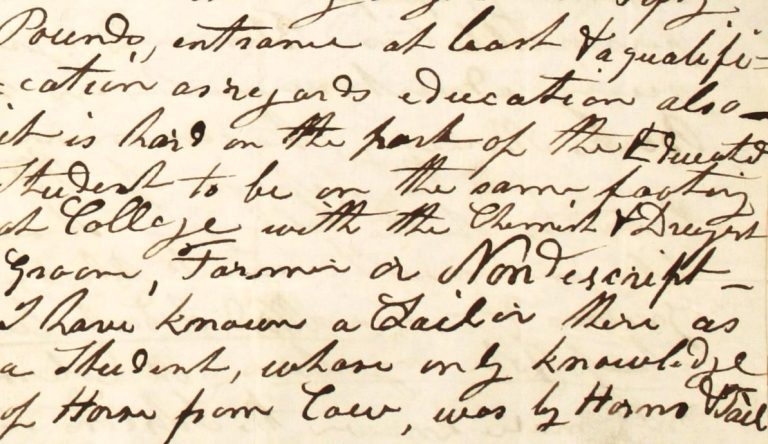 Pounds, entrance at least & a qualifi=
=cation as regards education also_
it is hard on the part of the Educated
Student to be on the same footing
at College with the Chemist & Drugist
Groom, Farmer or Nondescript_
I have known a Tailor there as
a Student, whose only knowledge
of Horse from Cow, was by Horns & Tail